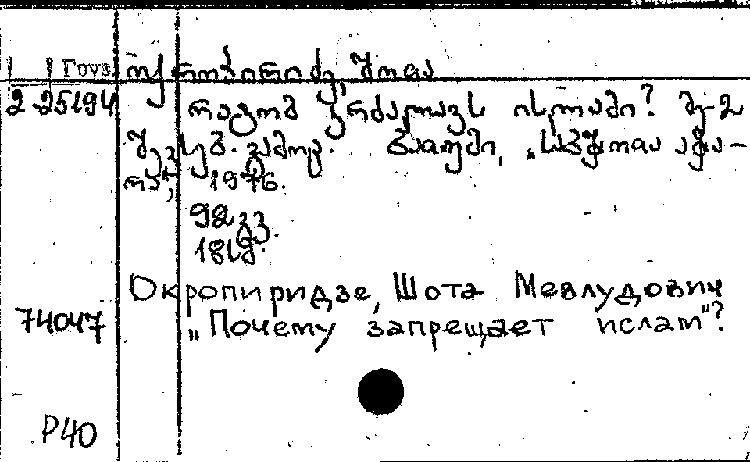 Груз. ოქროპირიძე, შოთა
2-25194 რატომ კრძალავს ისლამი? მე-2
შევსებ. გამოც. ბათუმი, „საბჭოთა აჭა-
რა“, 1976.
92 გვ.
Окропиридзе, Шота Мевлудович
74047 „Почему запрещает ислам“?
Р40